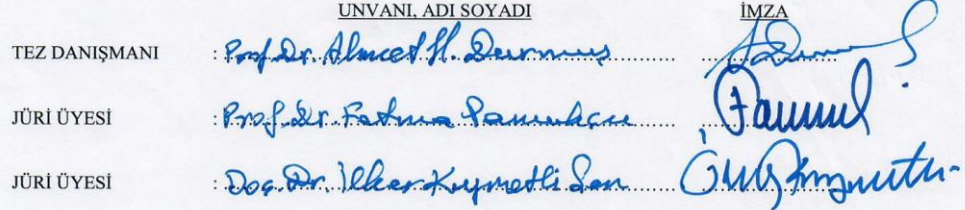 UNVANI, ADI SOYADI İMZA
TEZ DANIŞMANI : Prof. Dr. Ahmet H. Durmuş
JÜRİ ÜYESİ : Prof. Dr. Fatma Pamukçu
JÜRİ ÜYESİ : Doç. Dr. İlker Kıymetli Şen